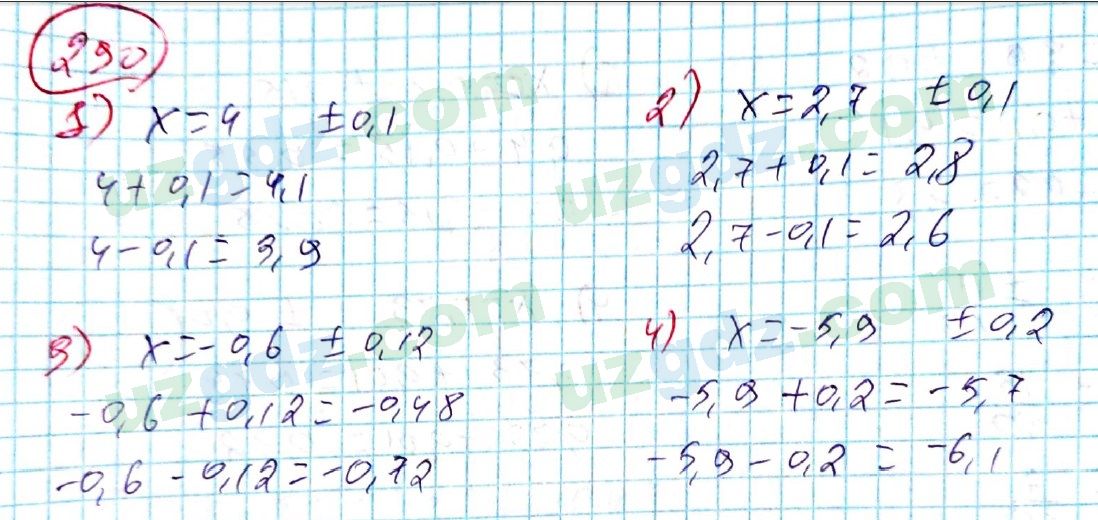 290
1) x=4 ±0,1
4+0,1=4,1
4-0,1=3,9
2) x=2,7 ±0,1
2,7+0,1=2,8
2,7-0,1=2,6
3) x=-0,6 ±0,12
-0,6+0,12=-0,48
-0,6-0,12=-0,72
4) x=-5,9 ±0,2
-5,9+0,2=-5,7
-5,9-0,2=-6,1
uzgdz.com
uzgdz.com
uzgdz.com
uzgdz.com